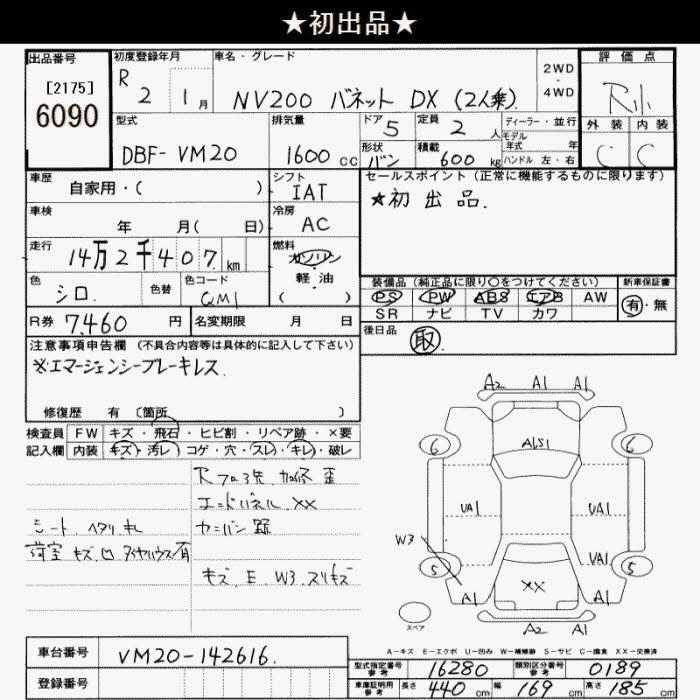 ★初出品★
出品番号
[2175]
6090
初度登録年月
R 2 1月
車名・グレード
NV200 バネット DX (2人乗)
2WD
・
4WD
評価点
R小
外装 内装
C C
型式
DBF-VM20
排気量
1600cc
ドア 5
定員 2人
ディーラー・並行
モデル年式 年
ハンドル 左・右
形状 バン
積載 600kg
車歴
自家用・( )
シフト
IAT
セールスポイント (正常に機能するものに限ります)
★初出品.
車検
年 月( 日)
冷房
AC
走行
14万2千407km
燃料
ガソリン
軽油
( )
色
シロ.
色替
色コード
QM1
装備品 (純正品に限り○をつけてください)
PS PW ABS エアB AW
SR ナビ TV カワ
新車保証書
有・無
R券 7,460円
名変期限 月 日
後日品
取
注意事項申告欄 (不具合内容等は具体的に記入して下さい)
※エマージェンシーブレーキレス.
修復歴 有 〔箇所 〕
検査員記入欄
FW キズ・飛石・ヒビ割・リペア跡・×要
内装 キズ・汚レ・コゲ・穴・スレ・キレ・破レ
エンドパネル ××
シート ヘタリ
荷室 キズ 凹
キズ.E W3.スリキズ
A2 A1 A1
6 6
A1S1
UA1 UA1
W3 UA1
5 5
A1 ×× A1
A2 A1
スペア
A-キズ E-エクボ U-凹み W-補修跡 S-サビ C-腐食 XX-交換済
車台番号
VM20-142616.
登録番号
型式指定番号
参考
16280
類別区分番号
参考
0189
車庫証明用
参考
長さ 440cm 幅 169cm 高さ 185cm